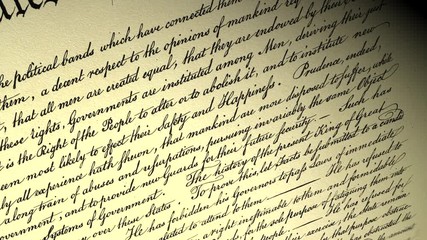 he political bands which have connected them
them, a decent respect to the opinions of mankind req
, that all men are created equal, that they are endowed by their
these rights, Governments are instituted among Men, deriving their just
is the Right of the People to alter or to abolish it, and to institute new
seem most likely to effect their Safety and Happiness. Prudence, indeed,
ly all experience hath shewn, that mankind are more disposed to suffer, while
a long train of abuses and usurpations, pursuing invariably the same Object
overnment, and to provide new Guards for their future security. — Such has
Systems of Government. The history of the present King of Great
over these States. To prove this, let Facts be submitted to a candid
He has forbidden his Governors to pass Laws of immediate
attend to them. — He has refused to
a right inestimable to them and formidable
for the sole purpose of fatiguing them into